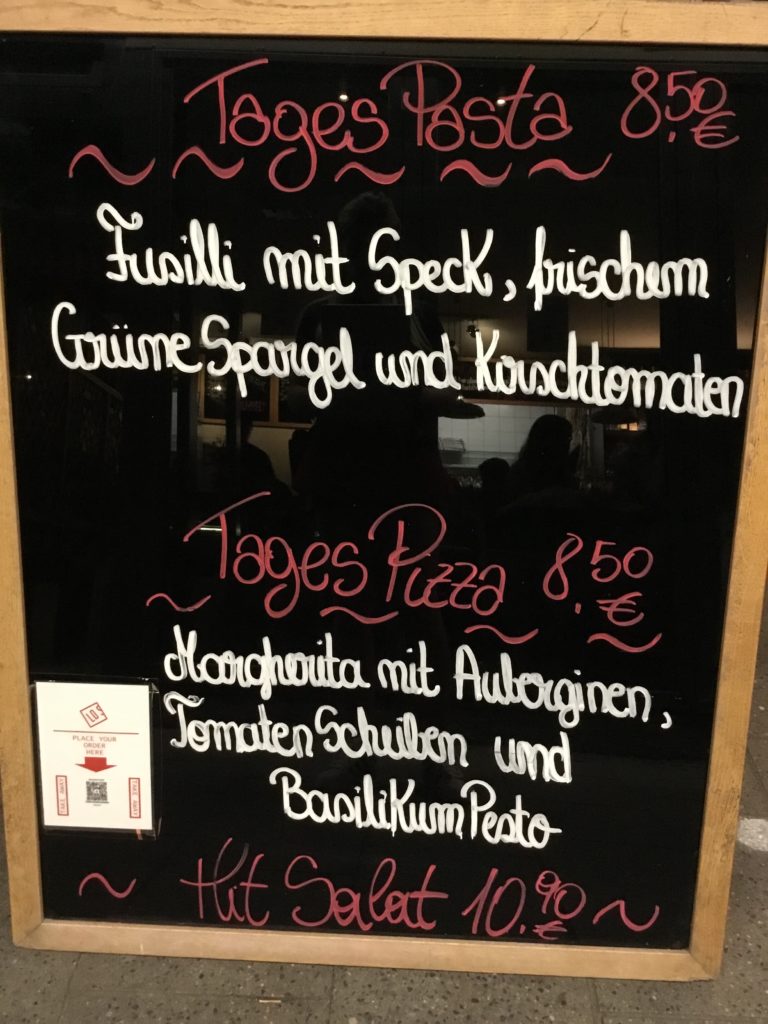 Tages Pasta 8.50 €
Fusilli mit Speck, frischem
Grüne Spargel und Kirschtomaten
Tages Pizza 8.50 €
Margherita mit Auberginen,
Tomaten Scheiben und
Basilikum Pesto
Hit Salat 10.90 €
PLACE YOUR
ORDER
HERE
TAKE AWAY
TAKE AWAY